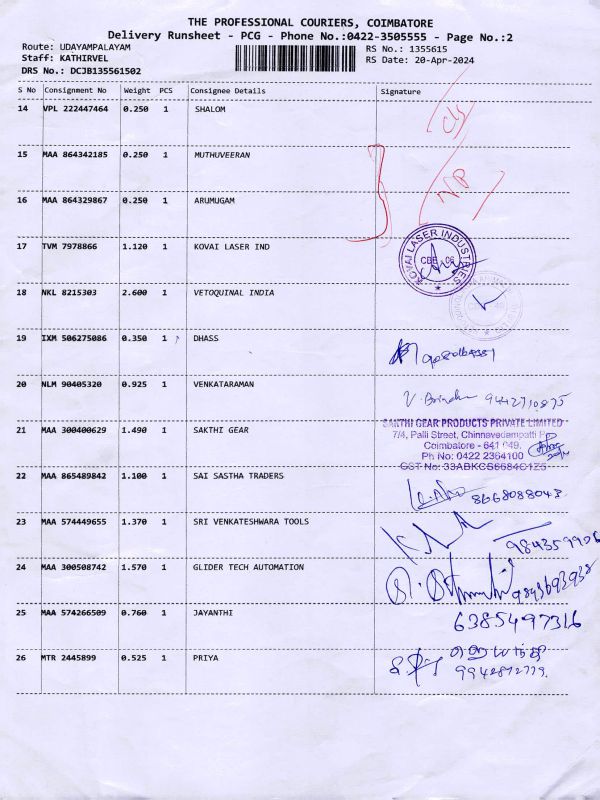 THE PROFESSIONAL COURIERS, COIMBATORE
Delivery Runsheet - PCG - Phone No.:0422-3505555 - Page No.:2
Route: UDAYAMPALAYAM RS No.: 1355615
Staff: KATHIRVEL RS Date: 20-Apr-2024
DRS No.: DCJB135561502
S No Consignment No Weight PCS Consignee Details Signature
14 VPL 222447464 0.250 1 SHALOM
15 MAA 864342185 0.250 1 MUTHUVEERAN
16 MAA 864329867 0.250 1 ARUMUGAM
NP
17 TVM 7978866 1.120 1 KOVAI LASER IND
KOVAI LASER INDUSTRIES
CBE - 06
18 NKL 8215303 2.600 1 VETOQUINAL INDIA
19 IXM 506275086 0.350 1 DHASS
20 NLM 90405320 0.925 1 VENKATARAMAN
9442710875
21 MAA 300400629 1.490 1 SAKTHI GEAR
SAKTHI GEAR PRODUCTS PRIVATE LIMITED
7/4, Palli Street, Chinnavedampatti
Coimbatore - 641 049.
Ph No: 0422 2364100
GST No: 33ABKCS6684C1Z5
22 MAA 865489842 1.100 1 SAI SASTHA TRADERS
8668088043
23 MAA 574449655 1.370 1 SRI VENKATESHWARA TOOLS
984359906
24 MAA 300508742 1.570 1 GLIDER TECH AUTOMATION
9843693938
25 MAA 574266509 0.760 1 JAYANTHI
6385497316
26 MTR 2445899 0.525 1 PRIYA
ஜெயந்தி
9942812779.